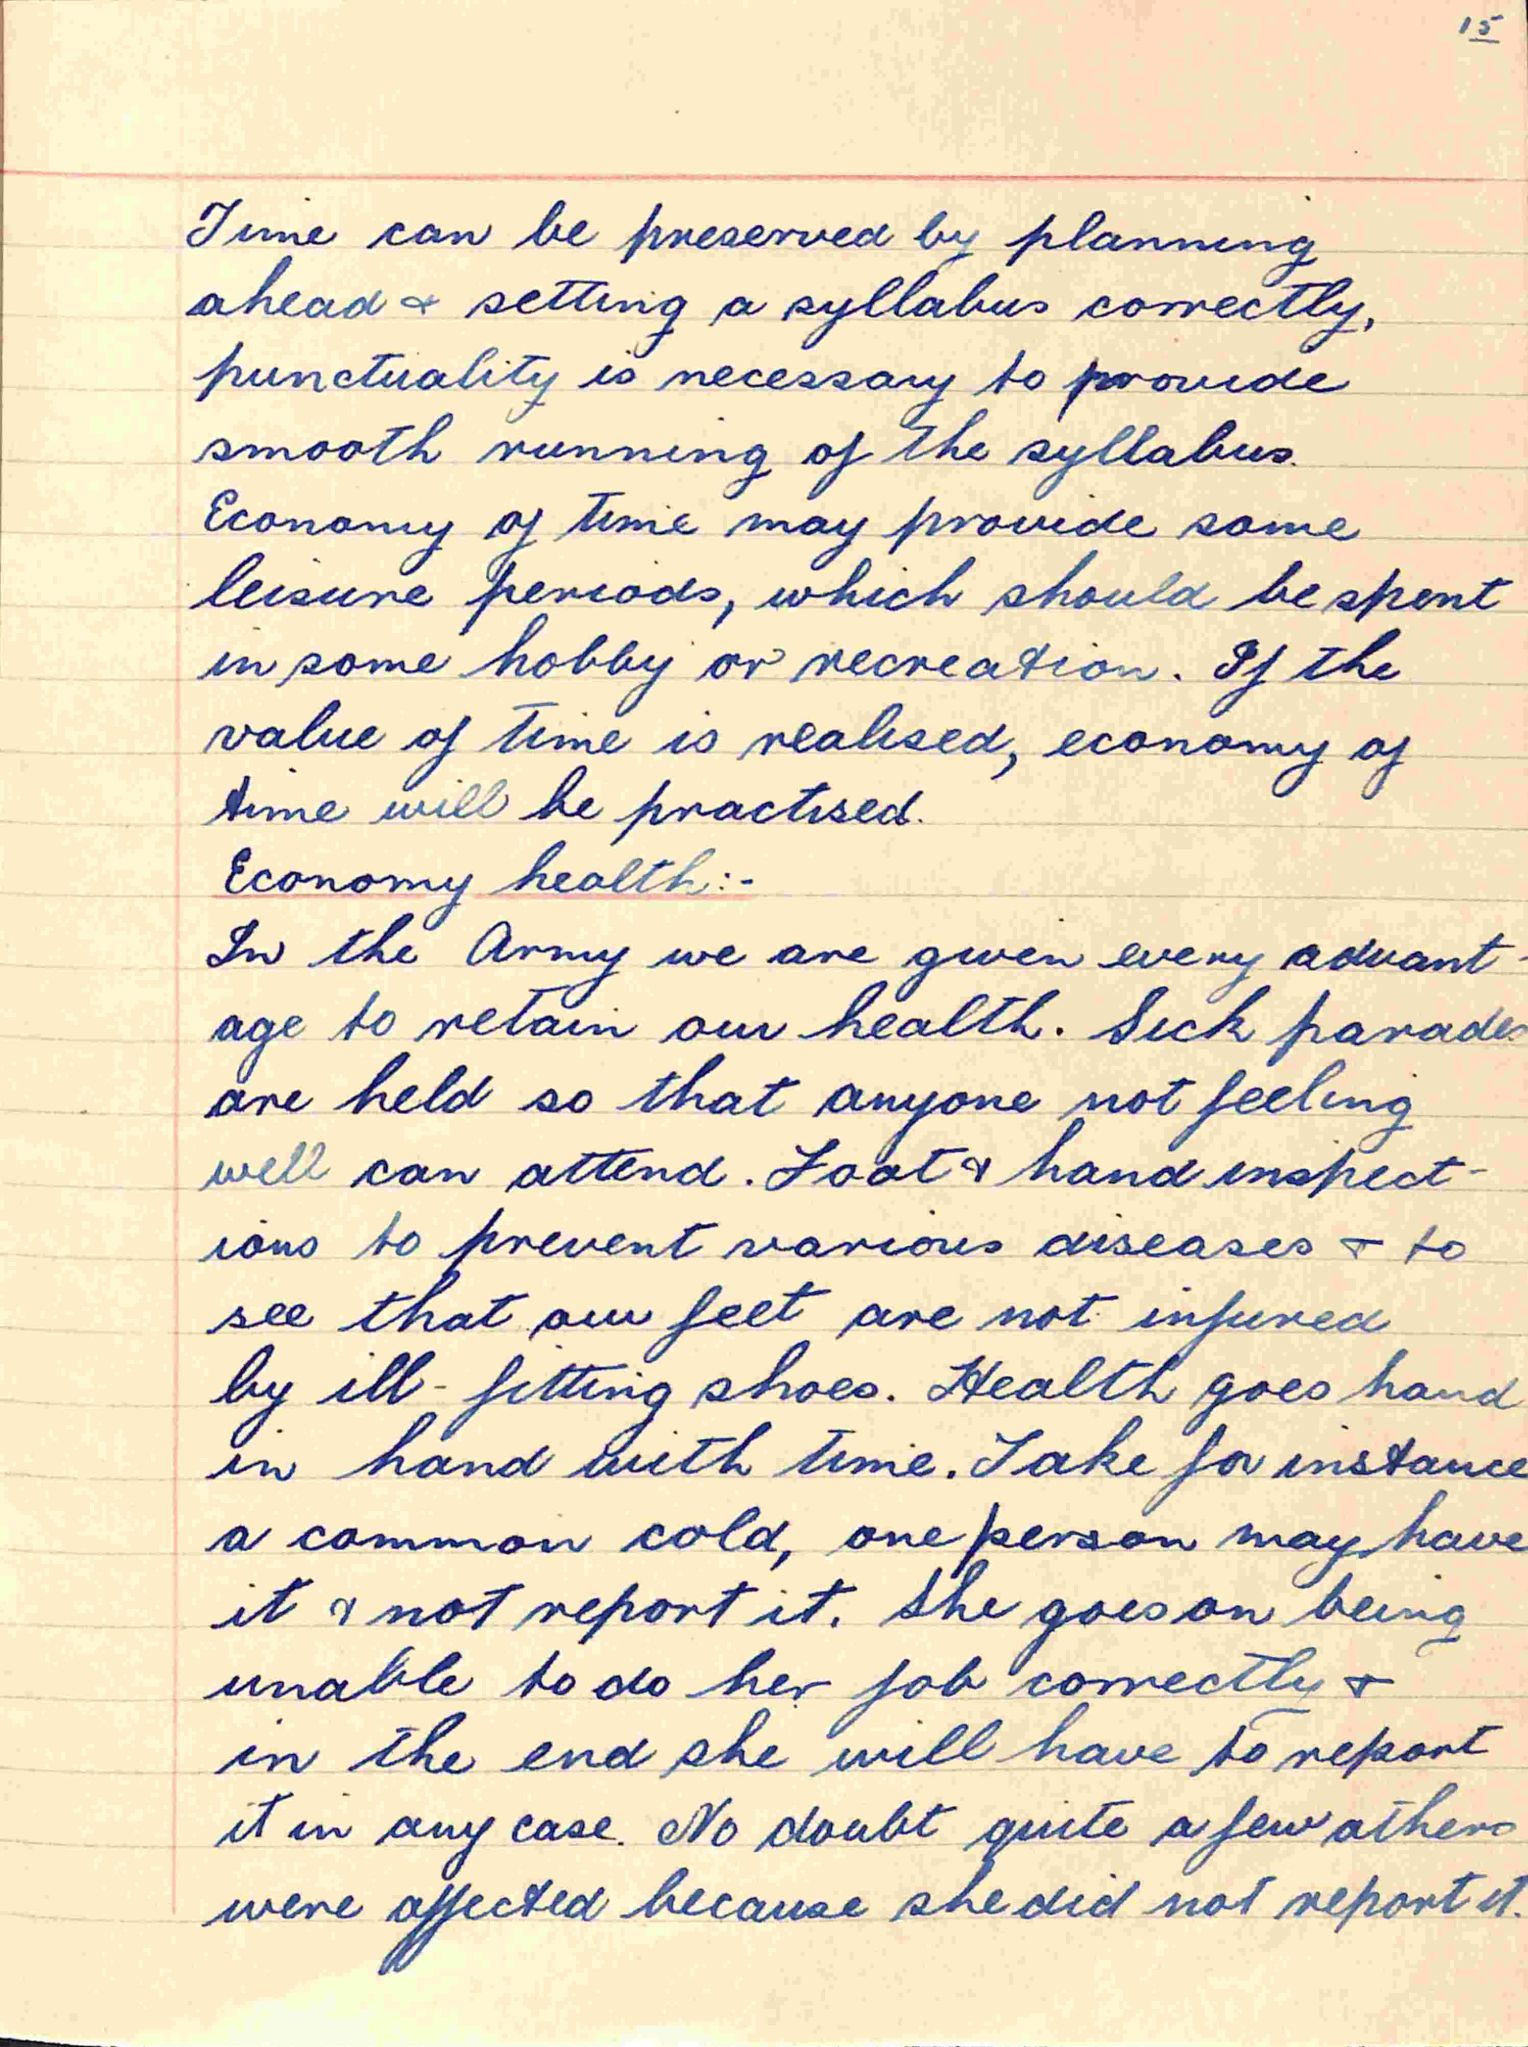 15
Time can be preserved by planning
ahead & setting a syllabus correctly,
punctuality is necessary to provide
smooth running of the syllabus.
Economy of time may provide some
leisure periods, which should be spent
in some hobby or recreation. If the
value of time is realised, economy of
time will be practised.
Economy health:-
In the Army we are given every advant-
age to retain our health. Sick parades
are held so that anyone not feeling
well can attend. Foot & hand inspect-
ions to prevent various diseases & to
see that our feet are not injured
by ill-fitting shoes. Health goes hand
in hand with time. Take for instance
a common cold, one person may have
it & not report it. She goes on being
unable to do her job correctly &
in the end she will have to report
it in any case. No doubt quite a few others
were affected because she did not report it.